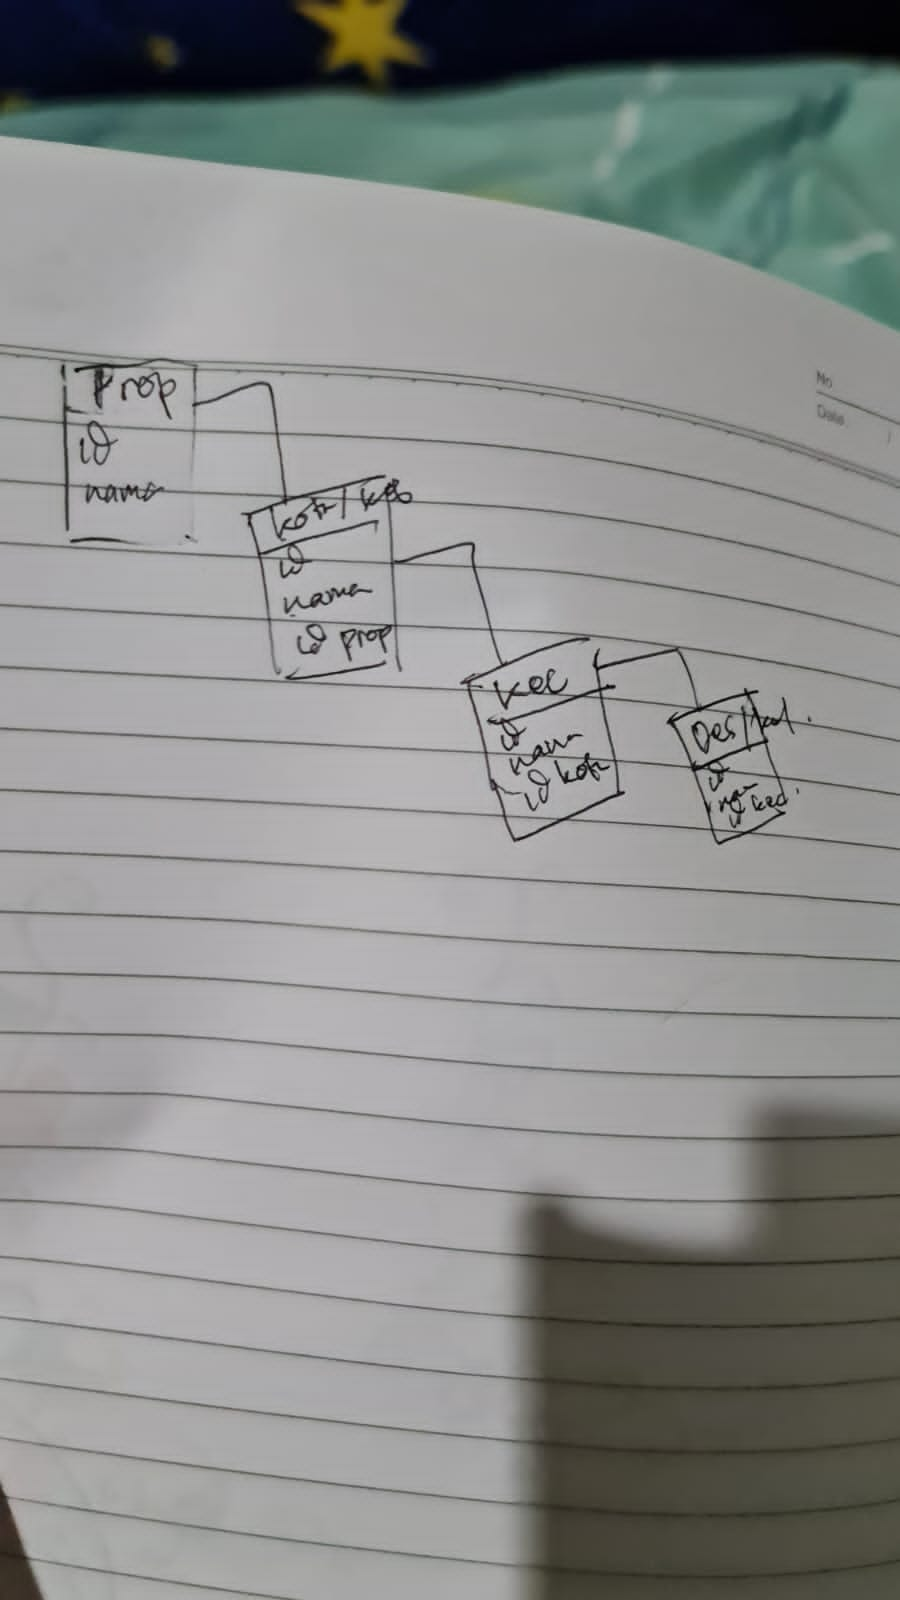 No
Date
Prop
id
nama
kota/kab
id
nama
id prop
kec
id
nama
id kota
Des/kel.
id
nam
id kec.